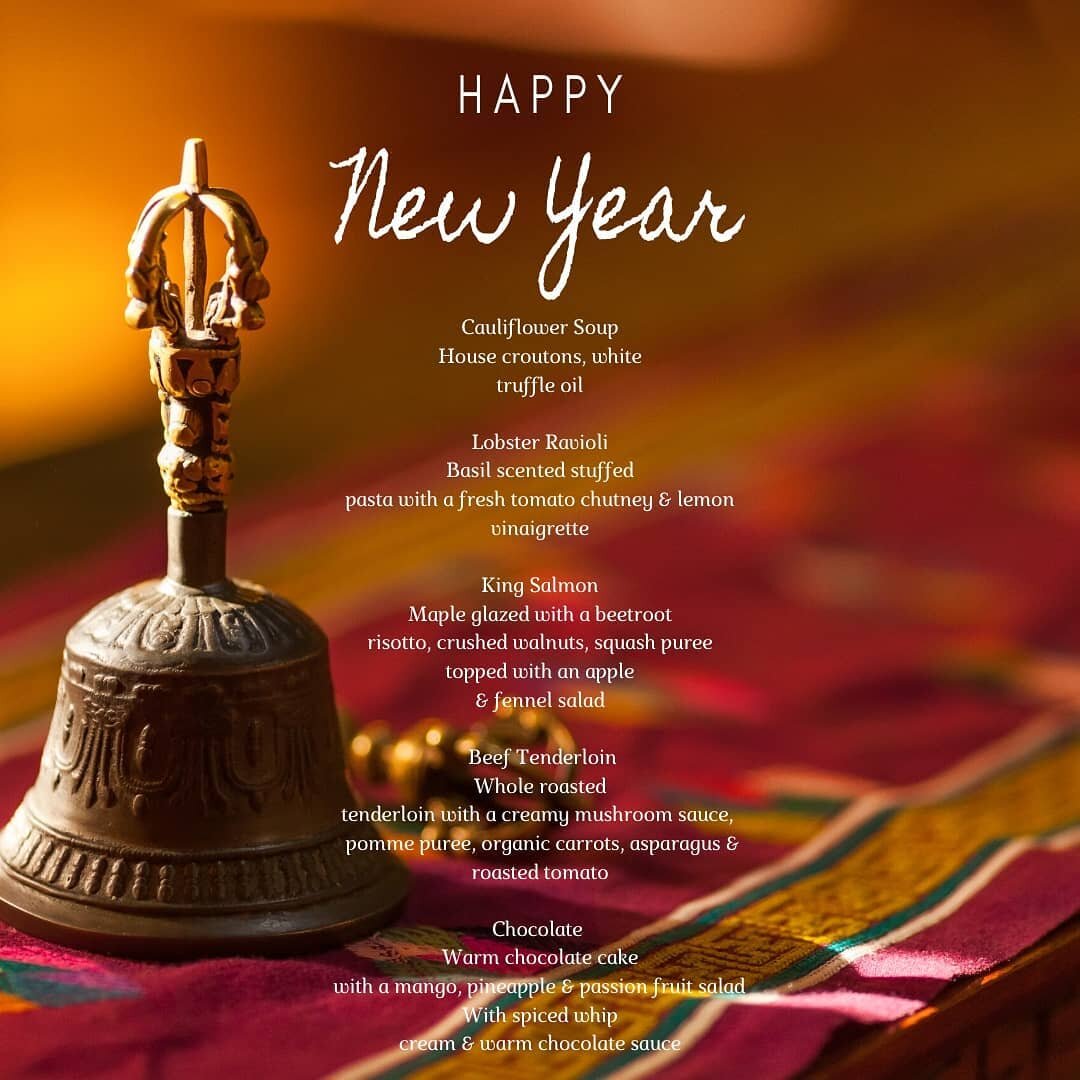 HAPPY
New Year
Cauliflower Soup
House croutons, white
truffle oil
Lobster Ravioli
Basil scented stuffed
pasta with a fresh tomato chutney & lemon
vinaigrette
King Salmon
Maple glazed with a beetroot
risotto, crushed walnuts, squash puree
topped with an apple
& fennel salad
Beef Tenderloin
Whole roasted
tenderloin with a creamy mushroom sauce,
pomme puree, organic carrots, asparagus &
roasted tomato
Chocolate
Warm chocolate cake
with a mango, pineapple & passion fruit salad
With spiced whip
cream & warm chocolate sauce